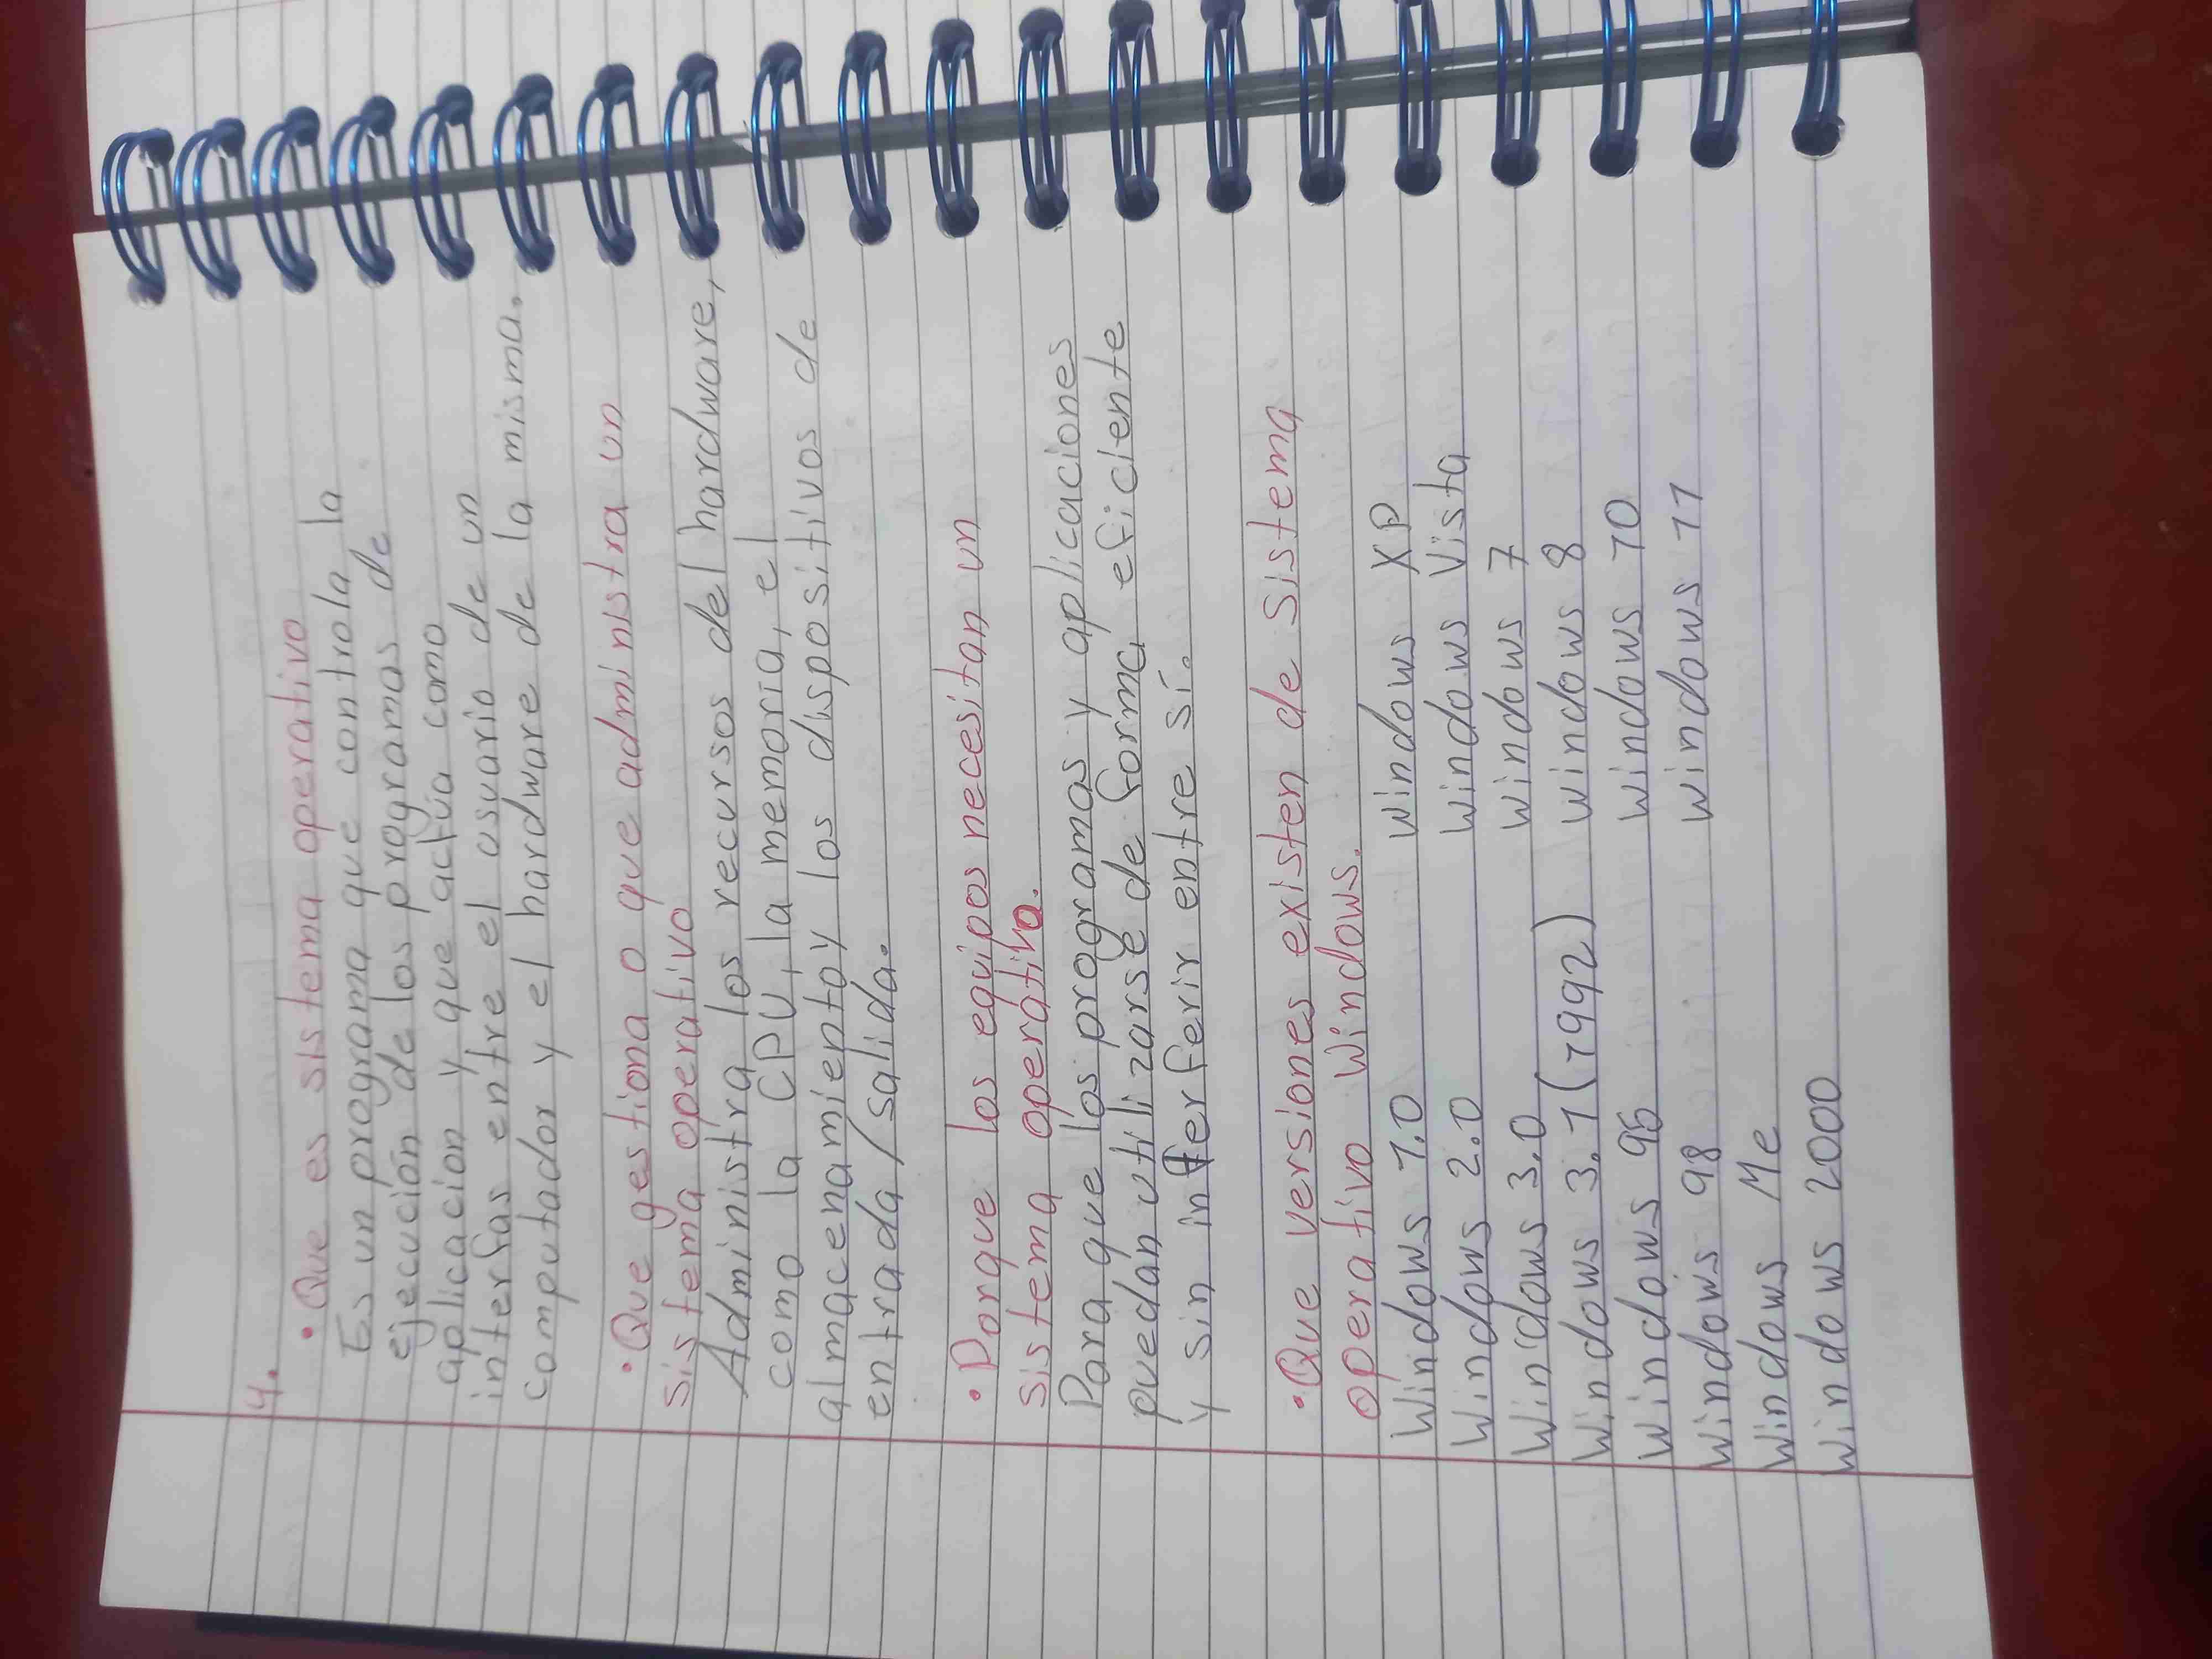 4.
• Que es sistema operativo
Es un programa que controla la
ejecución de los programas de
aplicacion y que actúa como
interfas entre el usuario de un
computador y el hardware de la misma.
• Que gestiona o que administra un
sistema operativo
Administra los recursos del hardware,
como la CPU, la memoria, el
almacenamiento y los dispositivos de
entrada/salida.
• Porque los equipos necesitan un
sistema operativo.
Para que los programas y aplicaciones
puedan utilizarse de forma eficiente
y sin interferir entre sí.
• Que versiones existen de sistema
operativo Windows.
Windows 1.0 Windows XP
Windows 2.0 Windows Vista
Windows 3.0 Windows 7
Windows 3.1 (1992) Windows 8
Windows 95 Windows 10
Windows 98 Windows 11
Windows Me
Windows 2000